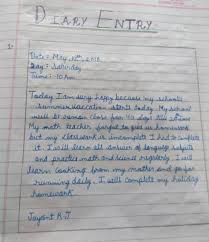 DIARY ENTRY
Date = May, 2016
Day = Saturday
Time = 10 Am
Today I am very happy because my school's
summer vaccation starts today. My school
will remain close for 40 days till
My math teacher forgot to give us homework
but my classwork is incomplete I had to complete
it. I will learn all answer of language subjects
and practice math and science regularly. I will
learn cooking from my mother and go for
running daily. I will complete my holiday
homework.
Jayant K.J